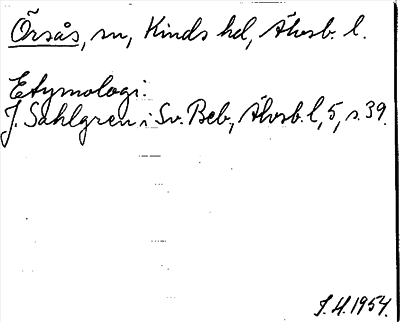 Örsås, sn, Kinds hd, Älvsb. l.
Etymologi:
J. Sahlgren i Sv. Beb., Älvsb. l, 5, s. 39.
J.H. 1954.